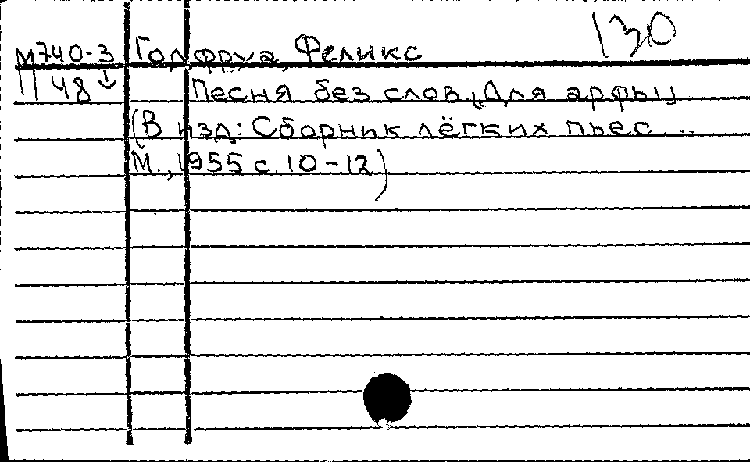 130
М740-3 Годфруа, Феликс
П 48 Песня без слов. Для арфы
(В изд: Сборник лёгких пьес ..
М., 1955 с. 10-12)